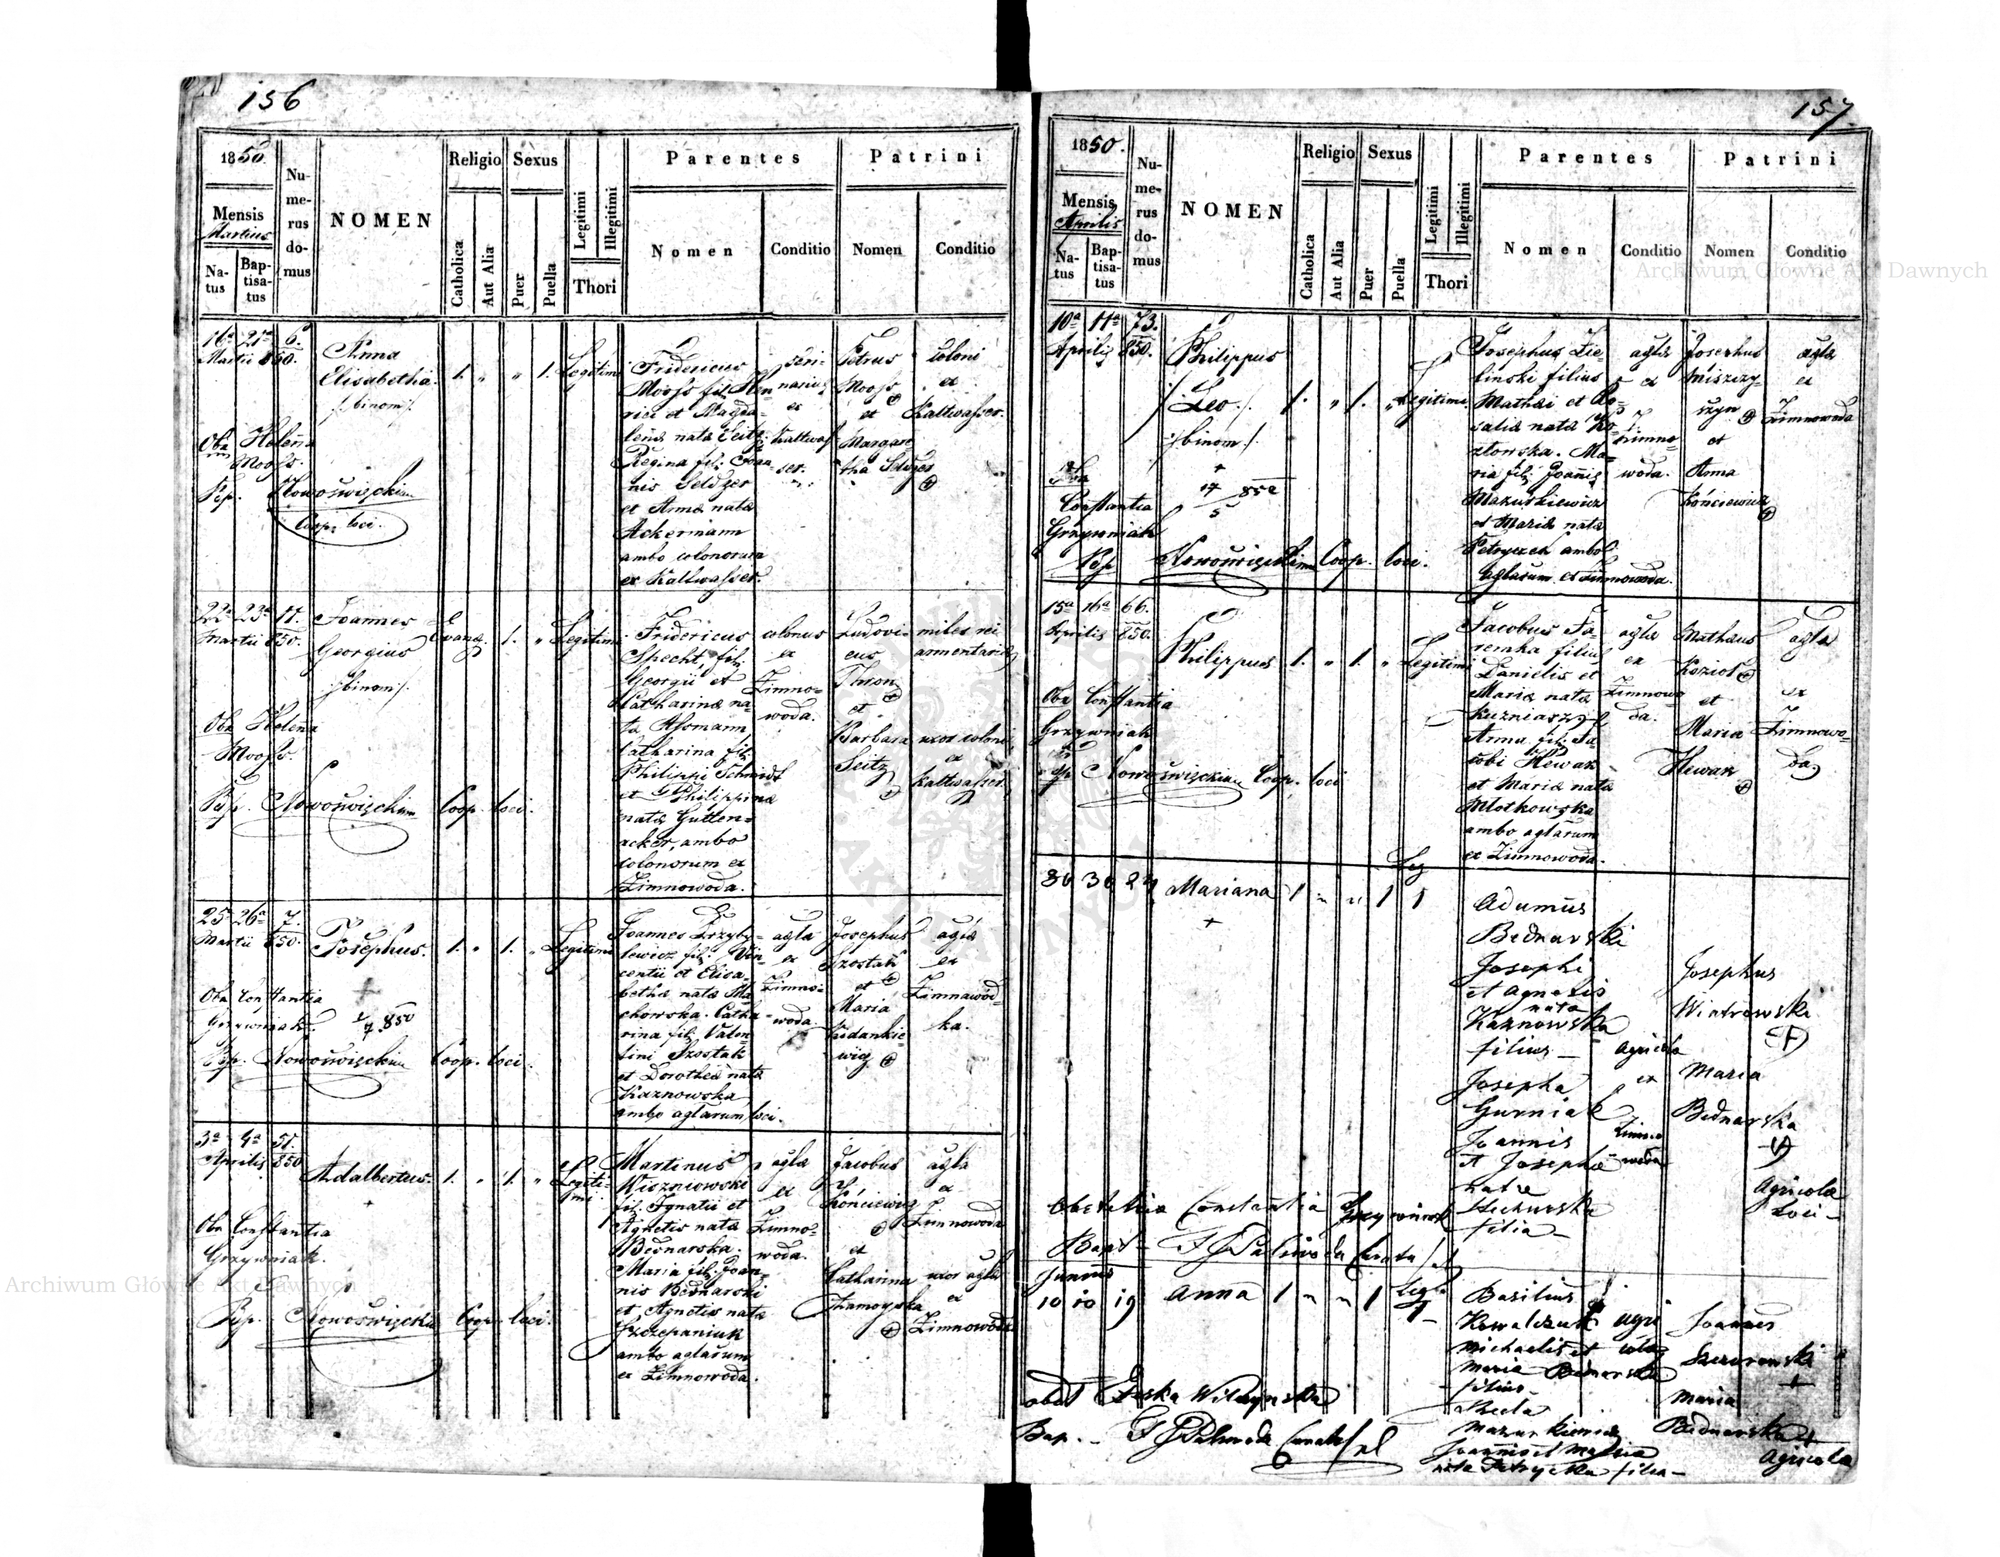 156
1850.
Mensis
Martius
Natus
Baptisatus
Numerus domus
NOMEN
Religio
Catholica
Aut Alia
Sexus
Puer
Puella
Legitimi
Illegitimi
Thori
Parentes
Nomen
Conditio
Patrini
Nomen
Conditio
16a 21a 6.
Martii 850.
Anna
Elisabetha.
/:binom:/
1. " " 1. Legitimi
Fridericus
Moofs fil. Hen-
rici et Magda-
lena nata Seitz.
Regina fil. Joan-
nis Seltzer
et Anna nata
Ackermann
ambo colonorum
ex Kaltwasser.
ex
Kaltwas-
ser.
Petrus
Moofs
et
Margare-
tha Seltzer
coloni
ex
Kaltwasser.
Obx Helena
Moofs.
Pep. Nowoświęcki
Coop. loci.
22a 23a 11.
Martii 850.
Joannes
Georgius
/:binom:/
Evang. 1. " Legitimi
Fridericus
Specht, fil.
Georgii et
Catharina na-
ta Assmann
Catharina fil.
Philippi Schmidt
et Philippina
nata Gutten-
acker, ambo
colonorum ex
Zimnowoda.
colonus
ex
Zimno-
woda.
Ludovi-
cus
Thron
et
Barbara
Seitz
miles rei
armentaria
uxor coloni
ex
Kaltwasser.
Obx Helena
Moofs.
Pep. Nowoświęcki Coop. loci.
25a 26a 7.
Martii 850.
Josephus. 1. " 1. " Legitimi
Joannes Przyby-
lewicz fil. Vin-
centii et Elisa-
betha nata Ma-
chowska. Catha-
rina fil. Valen-
tini Szostak
et Dorothea nata
Kaznowska
ambo agłarum loci.
agła
ex
Zimno-
woda.
Josephus
Szostak
et
Maria
ex
Zimnawód-
ka.
Obx Constantia
Grzywniak.
7 850
Pep. Nowoświęcki Coop. loci.
3a 4a 51.
Aprilis 850
Adalbertus. 1. " 1. " Legiti-
mi.
Martinus
Wiszniowski
fil. Ignatii et
Agnetis nata
Bednarska.
Maria fil. Joan-
nis Bednarski
et Agnetis nata
Szczepaniuk
ambo agłarum
ex Zimnowoda.
agła
ex
Zimno-
woda.
Jacobus
Kończewicz
et
Catharina
Zhamoyska
agła
ex
Zimnowoda
uxor agła
ex
Zimnowoda
Obx Constantia
Grzywniak.
Pep. Nowoświęcki Coop. loci.
157
1850.
Mensis
Aprilis
Natus
Baptisatus
Numerus domus
NOMEN
Religio
Catholica
Aut Alia
Sexus
Puer
Puella
Legitimi
Illegitimi
Thori
Parentes
Nomen
Conditio
Patrini
Nomen
Conditio
10a 11a 73.
Aprilis 850.
Philippus
/:Leo:/
/:binom:/
1. " 1. " Legitimi.
Josephus Zie-
linski filius
Mathai et Ro-
salia nata Ko-
złowska. Ma-
ria fil. Joanis
Mazurkiewicz
et Maria nata
Petryczen ambo
agłarum ex Zimnowoda.
agła
ex
Zimno-
woda.
Josephus
Miszczy-
szyn
et
Anna
Kończewicz
agła
ex
Zimnowoda
17/5 852
Constantia
Grzywniak
Pep Nowoświęcki Coop. loci.
15a 16a 66.
Aprilis 850.
Philippus 1. " 1. " Legitimi
Jacobus Ja-
remka filius
Danielis et
Maria nata
Anna fil. Ja-
cobi Hewak
et Maria nata
Młotkowska
ambo agłarum
ex Zimnowoda.
agła
ex
Zimnowo-
da.
Mathaus
Kozioł
et
Maria
Hewak
agła
ex
Zimnowo-
da
Obx Constantia
Grzywniak
Nowoświęcki Coop. loci
30 30 27 Mariana 1 " " 1 1
Leg
Adamus
Bednarski
Josephi
et Agnetis
nata
Kaznowska
filius
Josepha
Gurniak
Joannis
et Josepha
nata
filia
Agricola
ex
Zimno
woda
Josephus
Wintrowska
Maria
Bednarska
Agricola
Loci
Obstetrix Constantia Grzywniak
Bapt
Junius
10 10 19 Anna 1 " " 1
Basilius
Kowalczuk
Michaelis et
Maria Bednarska
filius
Mazurkiewicz
Joannis et Maria
nata Petryczka filia
agri
cola
Joannes
Maria
Bednarska
Agricola
Bap.